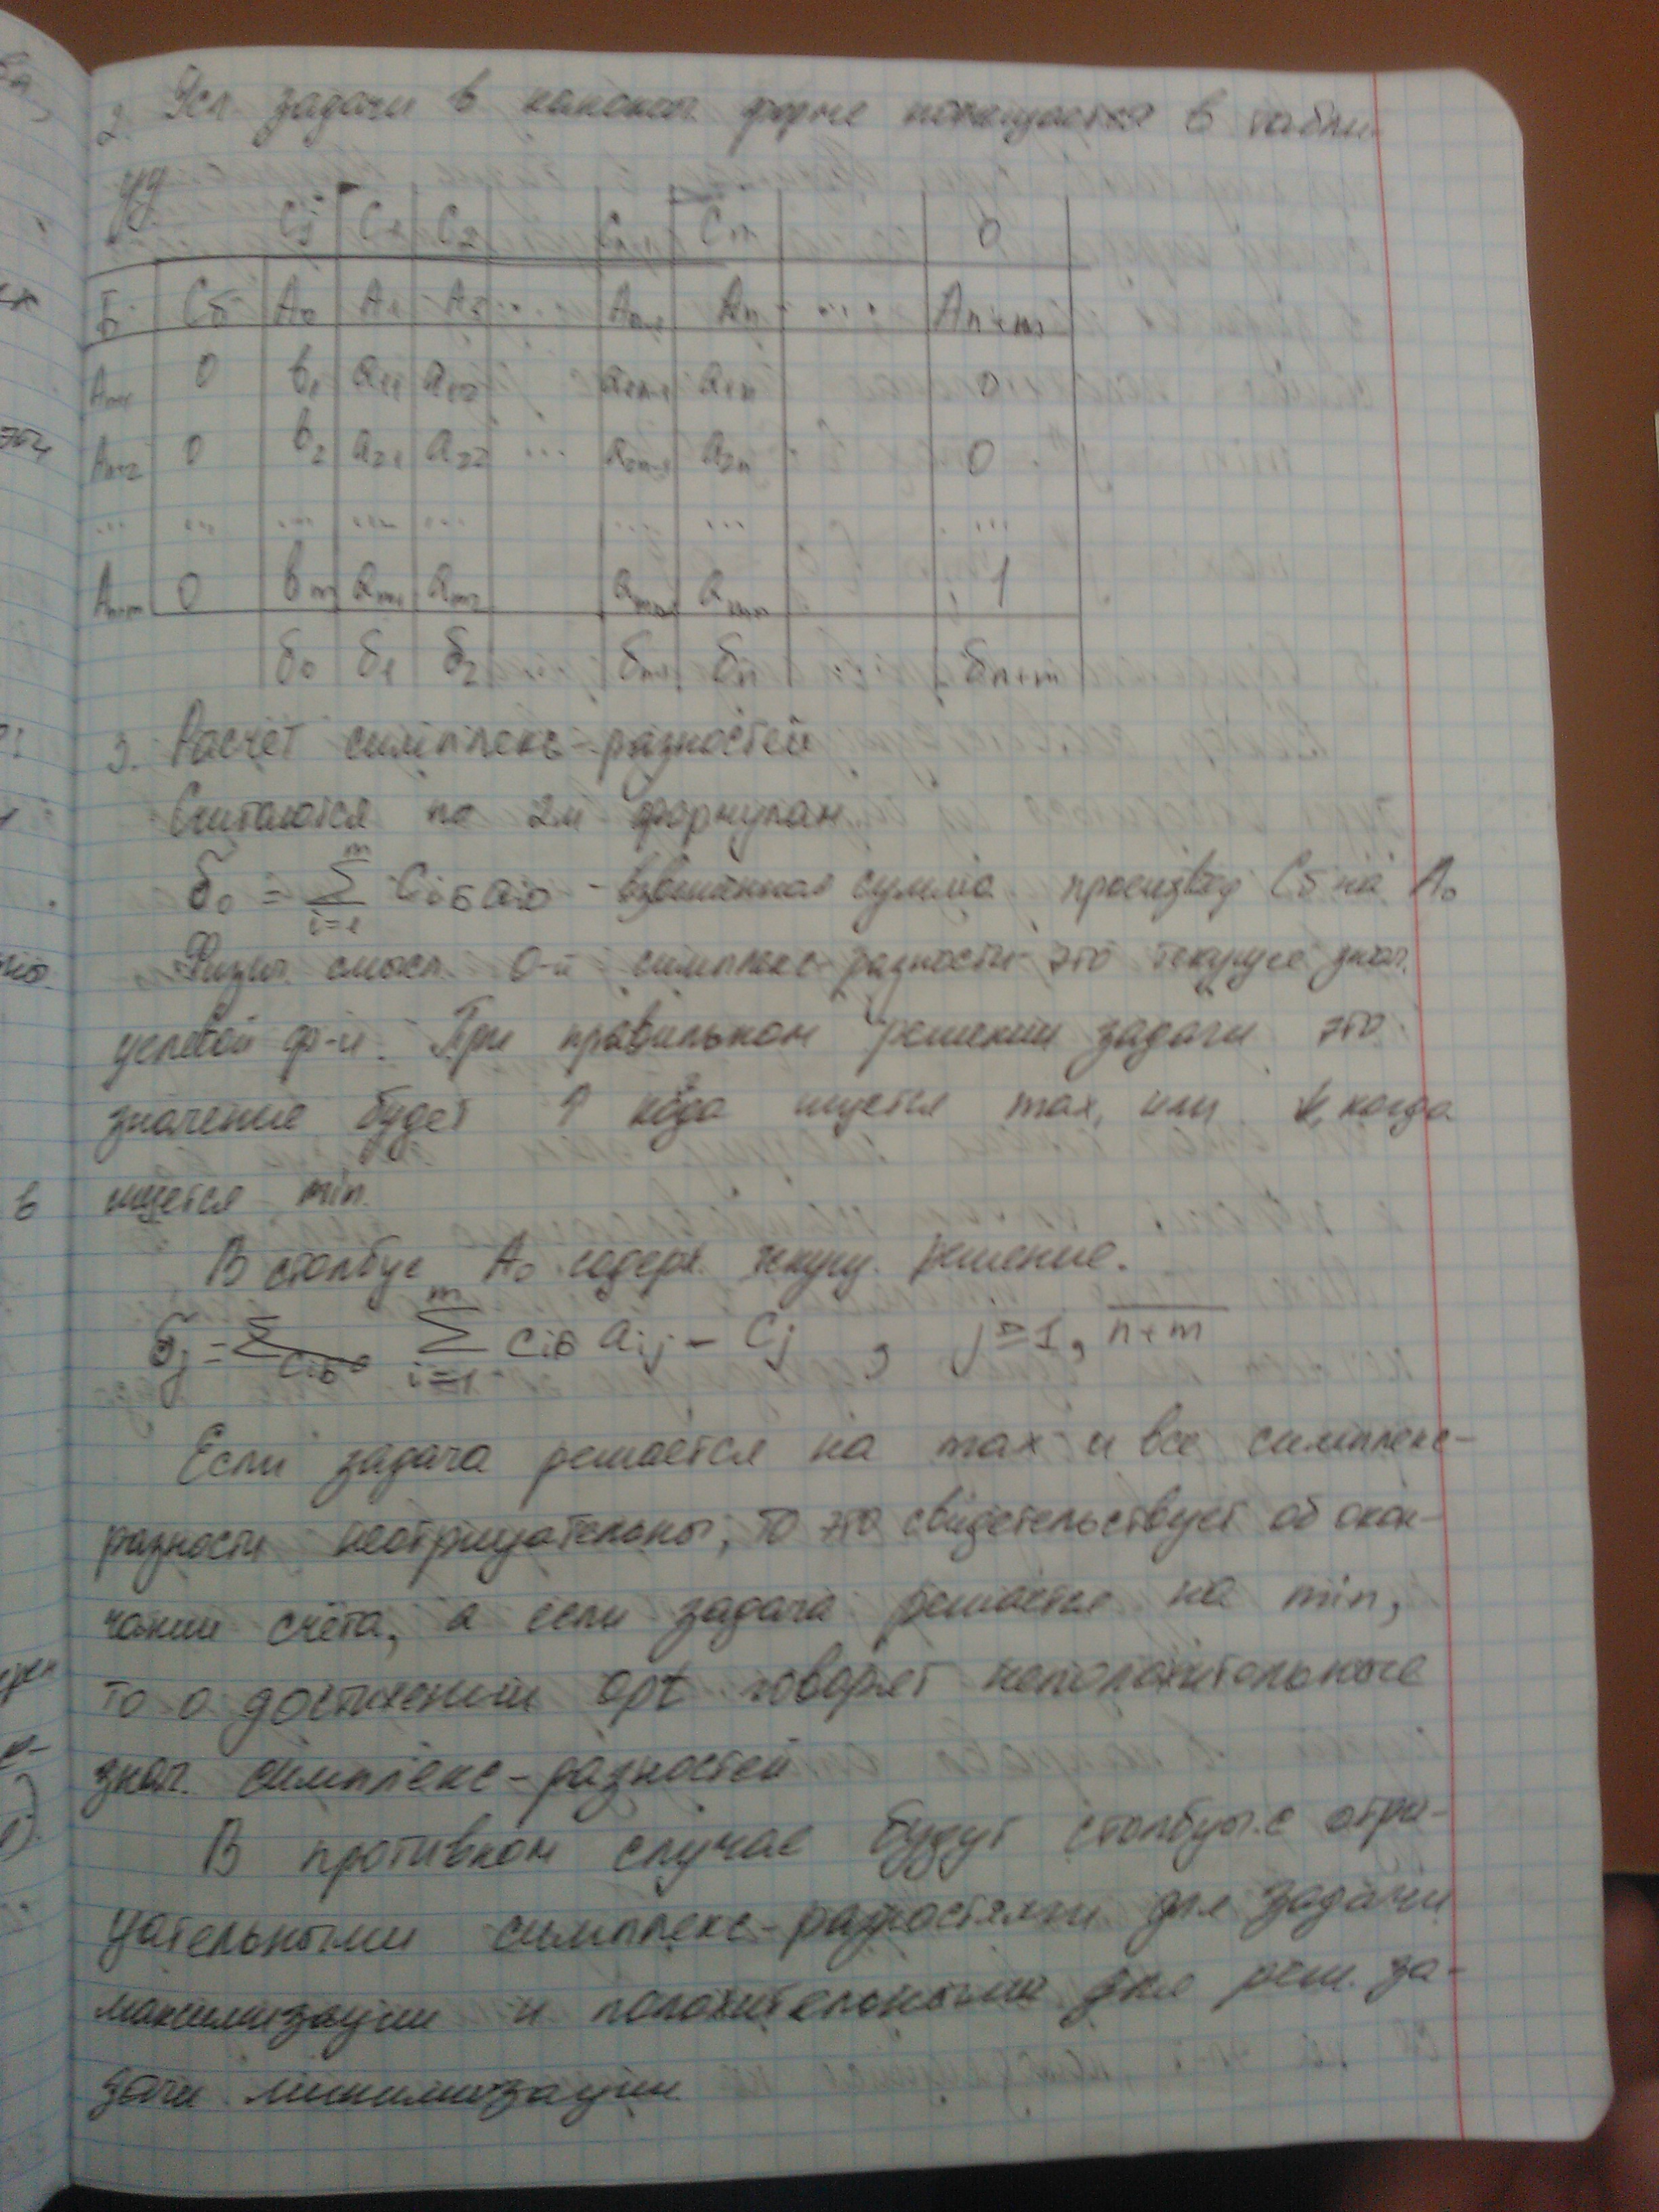 2. Усл. задачи в канонич. форме помещается в табли-
цу.
Cj C1 C2 Cn-1 Cn 0
Б Cб A0 A1 A2 ... An-1 An ... An+m
An+1 0 b1 a11 a12 a1n-1 a1n 0
An+2 0 b2 a21 a22 ... a2n-1 a2n 0
... ... ... ... ... ... ... ...
An+m 0 bm am1 am2 amn-1 amn 1
δ0 δ1 δ2 δn-1 δn ... δn+m
3. Расчёт симплекс-разностей
Считаются по 2м формулам
δ0 = Σ(i=1..m) Ciб ai0 - взвешенная сумма произвед Cб на A0
Физич. смысл 0-й симплекс-разности это текущее знач.
целевой ф-и. При правильном решении задачи это
значение будет ↑ когда ищется max, или ↓, когда
ищется min.
В столбце A0 содерж. текущ. решение.
δj = Σ(i=1..m) Ciб aij - Cj , j = 1, n+m
Если задача решается на max и все симплекс-
разности неотрицательны, то это свидетельствует об окон-
чании счёта, а если задача решается на min,
то о достижении opt говорят неположительные
знач. симплекс-разностей
В противном случае будут столбцы с отри-
цательными симплекс-разностями для задачи
максимизации и положительными для реш. за-
дачи минимизации